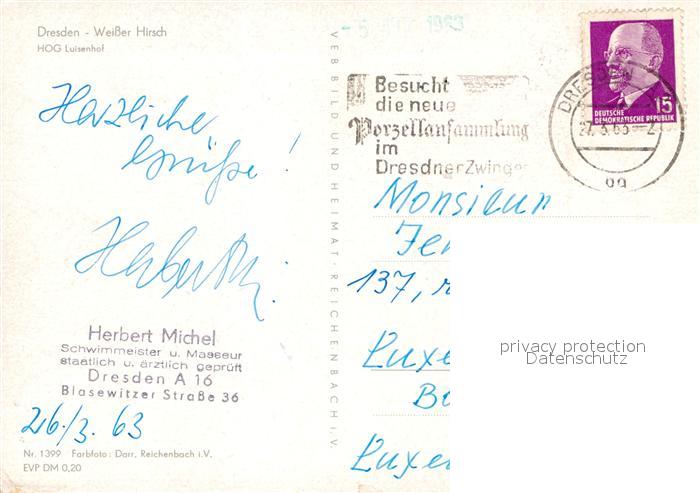 Dresden - Weißer Hirsch
HOG Luisenhof
Herzliche
Grüße!
Herbert
Herbert Michel
Schwimmeister u. Masseur
staatlich u. ärztlich geprüft
Dresden A 16
Blasewitzer Straße 36
26/3. 63
Nr. 1399 Farbfoto: Darr, Reichenbach i.V.
EVP DM 0,20
VEB BILD UND HEIMAT · REICHENBACH i. V.
1963
Besucht
die neue
Porzellansammlung
im
Dresdner Zwinger
DRESDEN
15
DEUTSCHE
DEMOKRATISCHE REPUBLIK
Monsieur
137,
privacy protection
Datenschutz